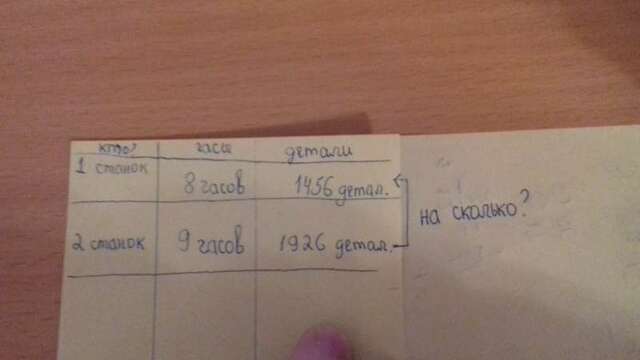 кто? часы детали
1 станок 8 часов 1456 детал.
на сколько?
2 станок 9 часов 1926 детал.